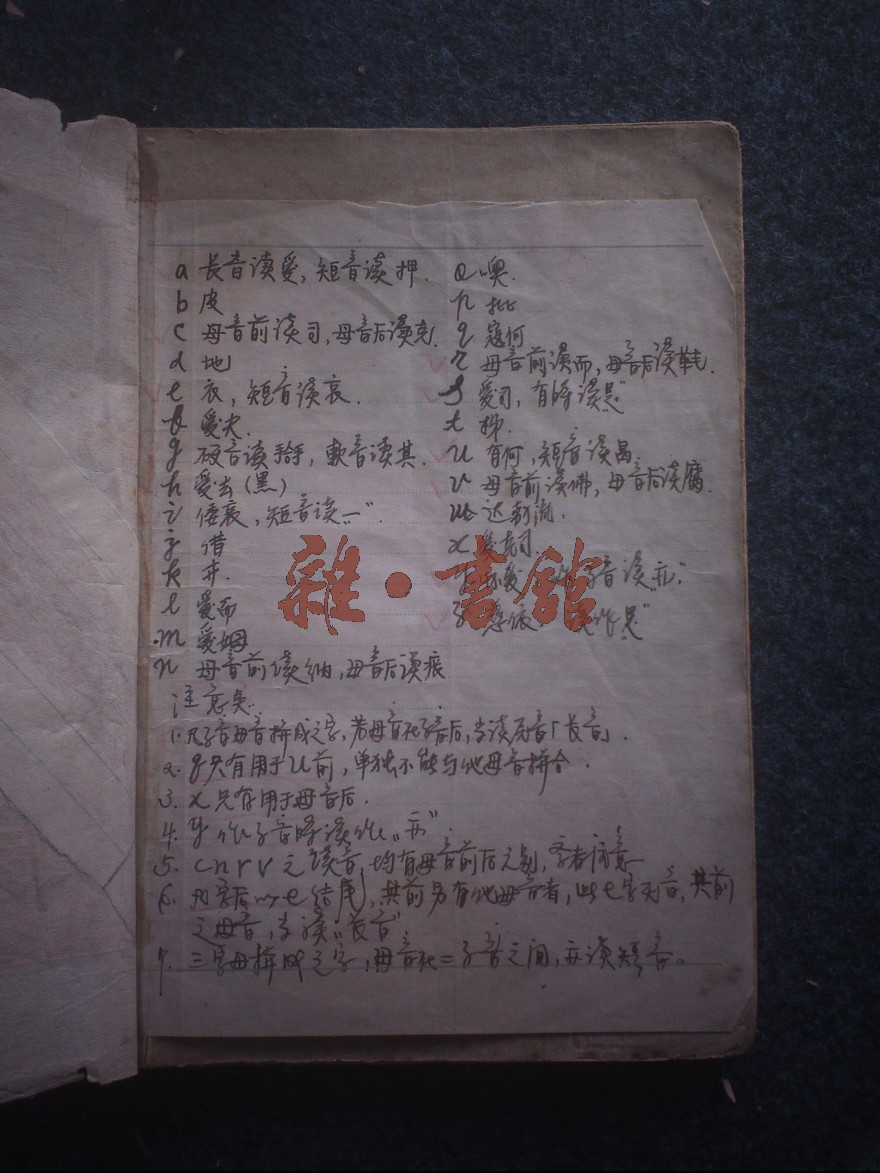 a 长音读爱，短音读押．
b 皮
c 母音前读司，母音后读克
d 地
e 衣，短音读哀．
f 爱夫．
g 硬音读 ，软音读其．
h 爱去（黑）
i 倭哀，短音读“一”．
j 借
k 开．
l 爱而
m 爱姆
n 母音前读纳，母音后读痕
o 噢．
p 批
q 寇何
r 母音前读而，母音后读 ．
s 爱司，有时读“是”
t 梯．
u 有何，短音读 ．
v 母音前读佛，母音后读腐．
w
x 爱克司．
y 音读“亦”
z 读作“是”
雜·書館
注意点．
1. 凡子音母音拼成之字，若母音在子音后，当读原音「长音」．
2. q只有用于u前，单独不能与他母音拼合．
3. x只有用于母音后．
4. y作子音时读作“亦”
5. c n r v 之读音，均有母音前后之别，
6. 凡字后以e结尾，其前另有他母音者，此e字无音，其前
之母音，当读“长音”
7. 三字母拼成之字，母音在二子音之间，亦读短音。